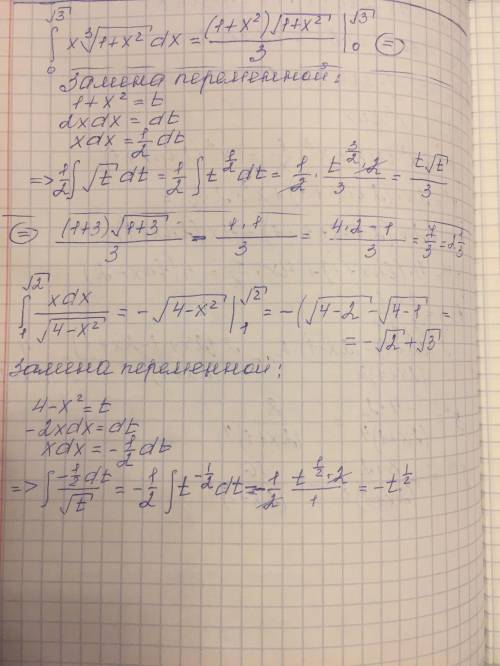 ∫₀^√3 x ∛(1+x²) dx = (1+x²)√(1+x²) / 3 |₀^√3 ⊜
Замена переменной:
1+x² = t
2xdx = dt
xdx = 1/2 dt
=> 1/2 ∫ √t dt = 1/2 ∫ t^(1/2) dt = 1/2 · t^(3/2)·2 / 3 = t√t / 3
⊜ (1+3)√(1+3) / 3 - 1·1 / 3 = 4·2-1 / 3 = 7/3 = 2 1/3
∫₁^√2 xdx / √(4-x²) = -√(4-x²) |₁^√2 = -(√(4-2) - √(4-1) =
= -√2+√3
Замена переменной:
4-x² = t
-2xdx = dt
xdx = -1/2 dt
=> ∫ -1/2 dt / √t = -1/2 ∫ t^(-1/2) dt = -1/2 · t^(1/2)·2 / 1 = -t^(1/2)